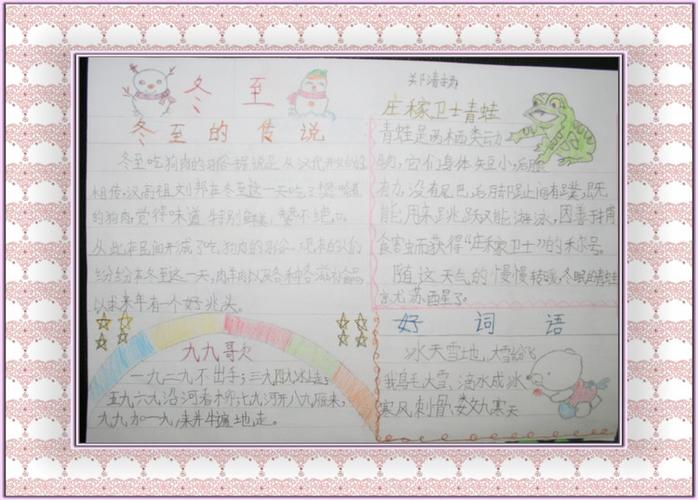 冬 至
冬至的传说
冬至吃狗肉的习俗据说是从汉代开始的
相传,汉高祖刘邦在冬至这一天吃了樊哙煮
的狗肉觉得味道特别鲜美,赞不绝口
从此在民间形成了吃狗肉的习俗。现在的人们
纷纷在冬至这一天,狗肉羊肉以及各种滋补食品
以求来年有一个好兆头。
九九歌
一九二九不出手;三九四九冰上走;
五九六九沿河看柳;七九河开八九雁来;
九九加一九,耕牛遍地走。
庄稼卫士青蛙
青蛙是两栖类动
物,它们身体短小,后腿
有力,没有尾巴,后脚趾上间有蹼,既
能用来跳跃又能游泳,因善于捕
食害虫而获得“庄稼卫士”的称号。
随这天气的慢慢转暖,冬眠的青蛙
苏醒了。
好 词 语
冰天雪地,大雪纷飞
鹅毛大雪,滴水成冰
寒风刺骨,数九寒天